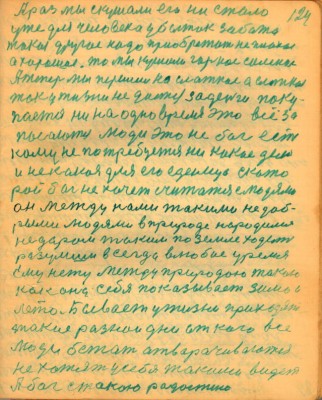 А раз мы скушали его ни стало 124
уже для человека убыток забота
такая другое надо приобретать не плохое
а хорошее. то мы кушали горькое соленое
А теперь мы перешли на сладкое а сладкая
так у жизни не дается задачи поку-
пается ни на одно время это всё за
посылают люди это не бог есть
кому не потребуется ни какое дело
и не какая для его одежда с кото
рой бог не хочет считатся с людями
он между нами такими недоб-
рыми людями в природе народился
не даром таким по земле ходит
разумеим всегда в любое время
ему нету между природою такою
как она себя показывает зимою
лето. Бывает у жизни приходят
такие разной дни от кого все
люди бегат отварачиваются
не хотят у себя такими видеть
А бог с такою радостию